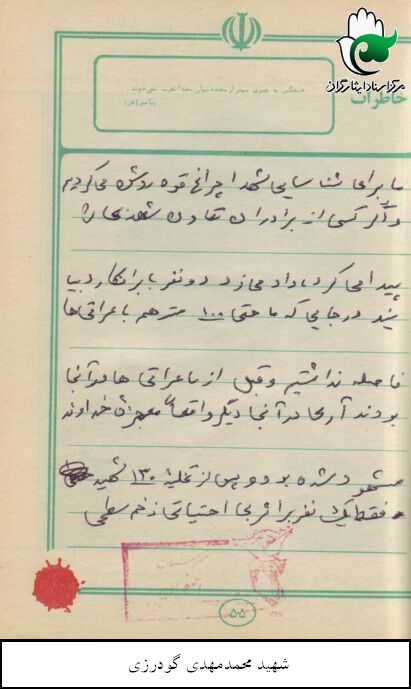 مرکز اسناد ایثارگران
خاطرات
هیچکس به چیزی بهتر از سجده پنهان بخدا تقرب نمی‌جوید.
پیامبر (ص)
ما برای شناسایی شهدا چراغ قوه روشن می‌کردیم
و اگر کسی از برادران تعاون شهدی را
پیدا می‌کرد داد می‌زد دو نفر با برانکارد بیا
یند در جایی که ما حتی ۱۰۰ متر هم با عراقی‌ها
فاصله نداشتیم و قبل از ما عراقی ها در آنجا
بودند آری در آنجا دیگر واقعاً معجزه خداوند
مشهود شده بود و پس از تخلیه ۱۳۰ شهید
فقط یک نفر بر اثر بی احتیاطی زخم سطحی
۵۵
شهید محمدمهدی گودرزی